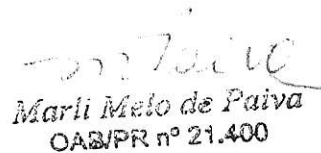 Marli Melo de Paiva
OAB/PR nº 21.400